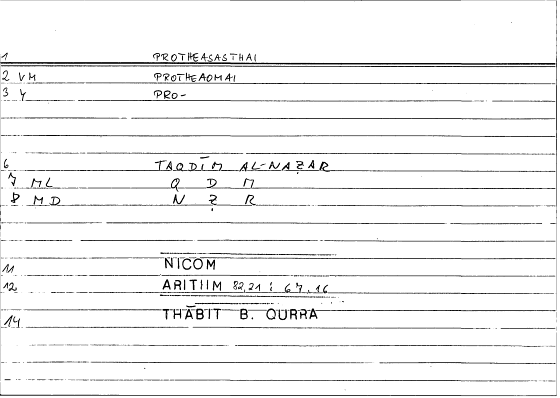 1 PROTHEASASTHAI
2 VM PROTHEAOMAI
3 Y PRO-
6 TAQDĪM AL-NAẒAR
7 ML Q D M
8 MD N Ẓ R
11 NICOM
12 ARITHM 82,21 : 67,16
14 THĀBIT B. QURRA